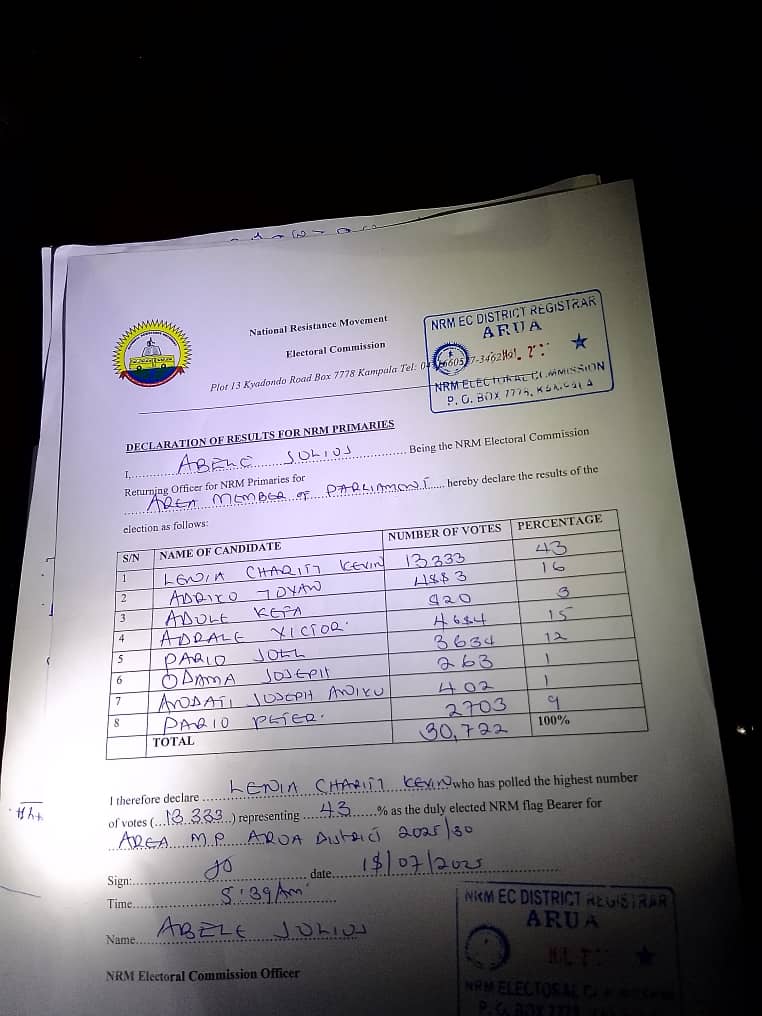 National Resistance Movement
Electoral Commission
Plot 13 Kyadondo Road Box 7778 Kampala Tel:
NRM EC DISTRICT REGISTRAR
ARUA
NRM ELECTORAL COMMISSION
P. O. BOX 7778, KAMPALA
DECLARATION OF RESULTS FOR NRM PRIMARIES
I, ABELE JULIUS Being the NRM Electoral Commission
Returning Officer for NRM Primaries for
AREA MEMBER OF PARLIAMENT hereby declare the results of the
election as follows:
S/N NAME OF CANDIDATE NUMBER OF VOTES PERCENTAGE
1 LENIA CHARITY KEVIN 13333 43
2 ADRIKO 4883 16
3 ADULE KEFA 820 3
4 ADRALE VICTOR. 4684 15
5 PARIO JOEL 3634 12
6 ODAMA JOSEPH 263 1
7 JOSEPH ANIKU 402 1
8 PARIO PETER. 2703 9
TOTAL 30,722 100%
I therefore declare LENIA CHARITY KEVIN who has polled the highest number
of votes (13333) representing 43 % as the duly elected NRM flag Bearer for
AREA M.P ARUA District 2025/30
Sign: date 18/07/2025
Time 8:39Am
Name ABELE JULIUS
NRM Electoral Commission Officer
NRM EC DISTRICT REGISTRAR
ARUA
NRM ELECTORAL
P. O. BOX